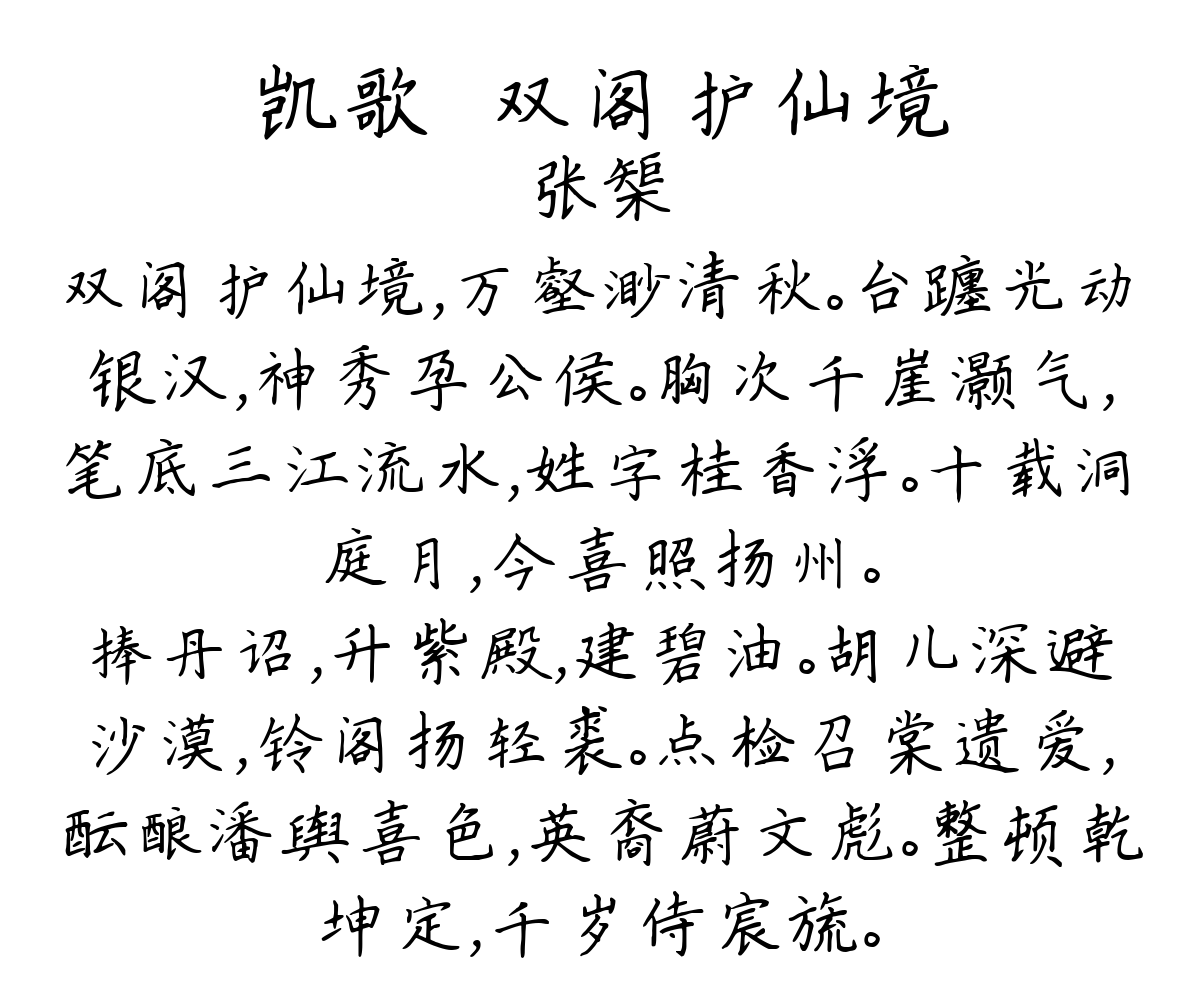 凯歌 双阁护仙境
张榘
双阁护仙境,万壑渺清秋。台躔光动
银汉,神秀孕公侯。胸次千崖灏气,
笔底三江流水,姓字桂香浮。十载洞
庭月,今喜照扬州。
捧丹诏,升紫殿,建碧油。胡儿深避
沙漠,铃阁扬轻裘。点检召棠遗爱,
酝酿潘舆喜色,英裔蔚文彪。整顿乾
坤定,千岁侍宸旒。